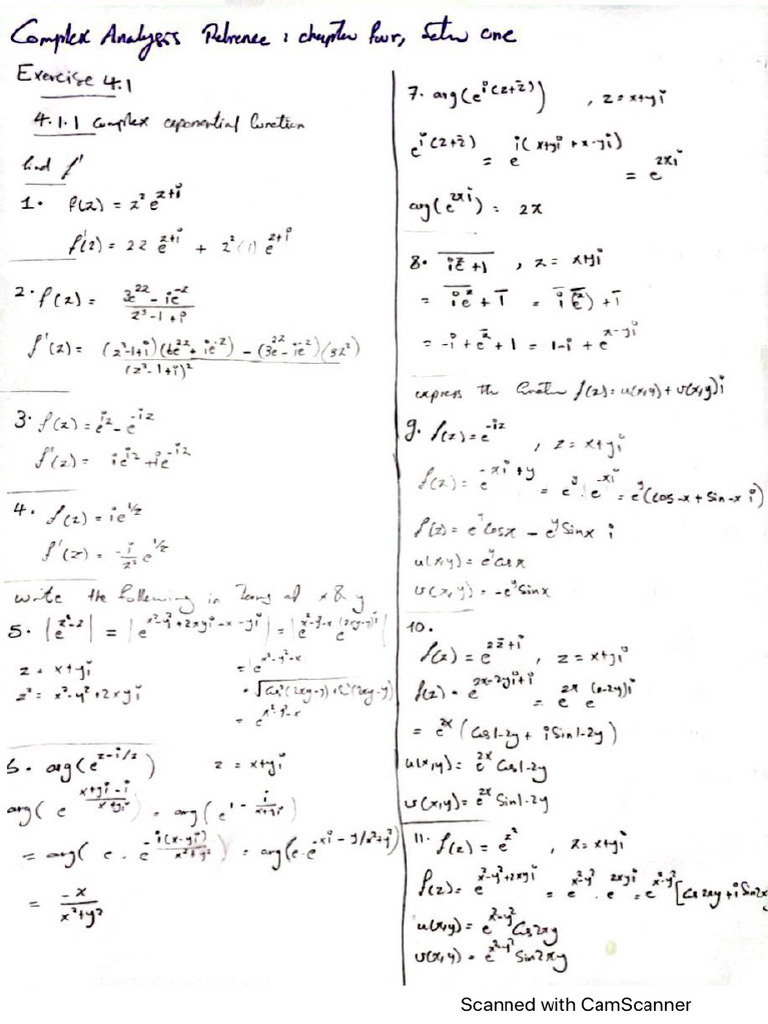 Complex Analysis Refrence : chapter four, Setion one
Exercise 4.1
4.1.1 Complex exponential function
find f'
1. f(z) = z² e^{z+i}
f'(z) = 2z e^{z+i} + z²(1) e^{z+i}
2. f(z) = (3e^{2z} - ie^{-z}) / (z³ - 1 + i)
f'(z) = ((z³-1+i)(6e^{2z} + ie^{-z}) - (3e^{2z} - ie^{-z})(3z²)) / (z³-1+i)²
3. f(z) = e^{iz} - e^{-iz}
f'(z) = ie^{iz} + ie^{-iz}
4. f(z) = ie^{1/z}
f'(z) = -i/z² e^{1/z}
write the following in Terms of x & y
5. |e^{z²-z}| = |e^{x²-y²+2xyi-x-yi}| = |e^{x²-y²-x} e^{(2xy-y)i}|
z = x+yi = |e^{x²-y²-x}
z² = x²-y²+2xyi · √(cos²(2xy-y)+sin²(2xy-y))
= e^{x²-y²-x}
6. arg(e^{z-i/z}) z = x+yi
arg( e^{(x+yi-i)/(x+yi)} ) = arg( e^{1 - i/(x+yi)} )
= arg( e · e^{-i(x-yi)/(x²+y²)} ) = arg(e·e^{-xi - y/x²+y²})
= -x / (x²+y²)
7. arg(e^{i(z+z̄)}) , z = x+yi
e^{i(z+z̄)} = e^{i(x+yi + x-yi)} = e^{2xi}
arg(e^{2xi}) = 2x
express the function f(z) = u(x,y) + v(x,y)i
9. f(z) = e^{-iz} , z = x+yi
f(z) = e^{-xi+y} = e^y · e^{-xi} = e^y(cos-x + sin-x i)
f(z) = e^y cosx - e^y sinx i
u(x,y) = e^y cosx
v(x,y) = -e^y sinx
10.
f(z) = e^{2z̄+i} , z = x+yi
f(z) = e^{2x-2yi+i} = e^{2x} e^{(1-2y)i}
= e^{2x} (Cos1-2y + iSin1-2y)
u(x,y) = e^{2x} Cos1-2y
v(x,y) = e^{2x} Sin1-2y
11. f(z) = e^{z²} , z = x+yi
f(z) = e^{x²-y²+2xyi} = e^{x²-y²} · e^{2xyi} = e^{x²-y²}[Cos2xy + iSin2x
u(x,y) = e^{x²-y²} Cos2xy
v(x,y) = e^{x²-y²} Sin2xy
Scanned with CamScanner